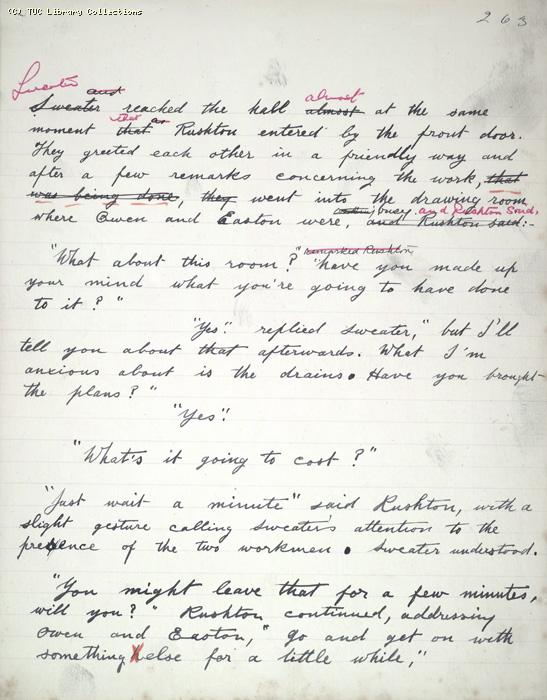 (C) TUC Library Collections
263
Sweater and almost
Sweater reached the hall almost at the same
that as
moment that Rushton entered by the front door.
They greeted each other in a friendly way and
after a few remarks concerning the work, that
was being done, they went into the drawing room
busy. and Rushton said,
where Owen and Easton were, and Rushton said:-
remarked Rushton
"What about this room?" "have you made up
your mind what you're going to have done
to it?"
"Yes": replied Sweater," but I'll
tell you about that afterwards. What I'm
anxious about is the drains. Have you brought
the plans?"
"Yes":
"What's it going to cost?"
"Just wait a minute" said Rushton, with a
slight gesture calling Sweater's attention to the
presence of the two workmen. Sweater understood.
"You might leave that for a few minutes,
will you?" Rushton continued, addressing
Owen and Easton," go and get on with
something else for a little while,"